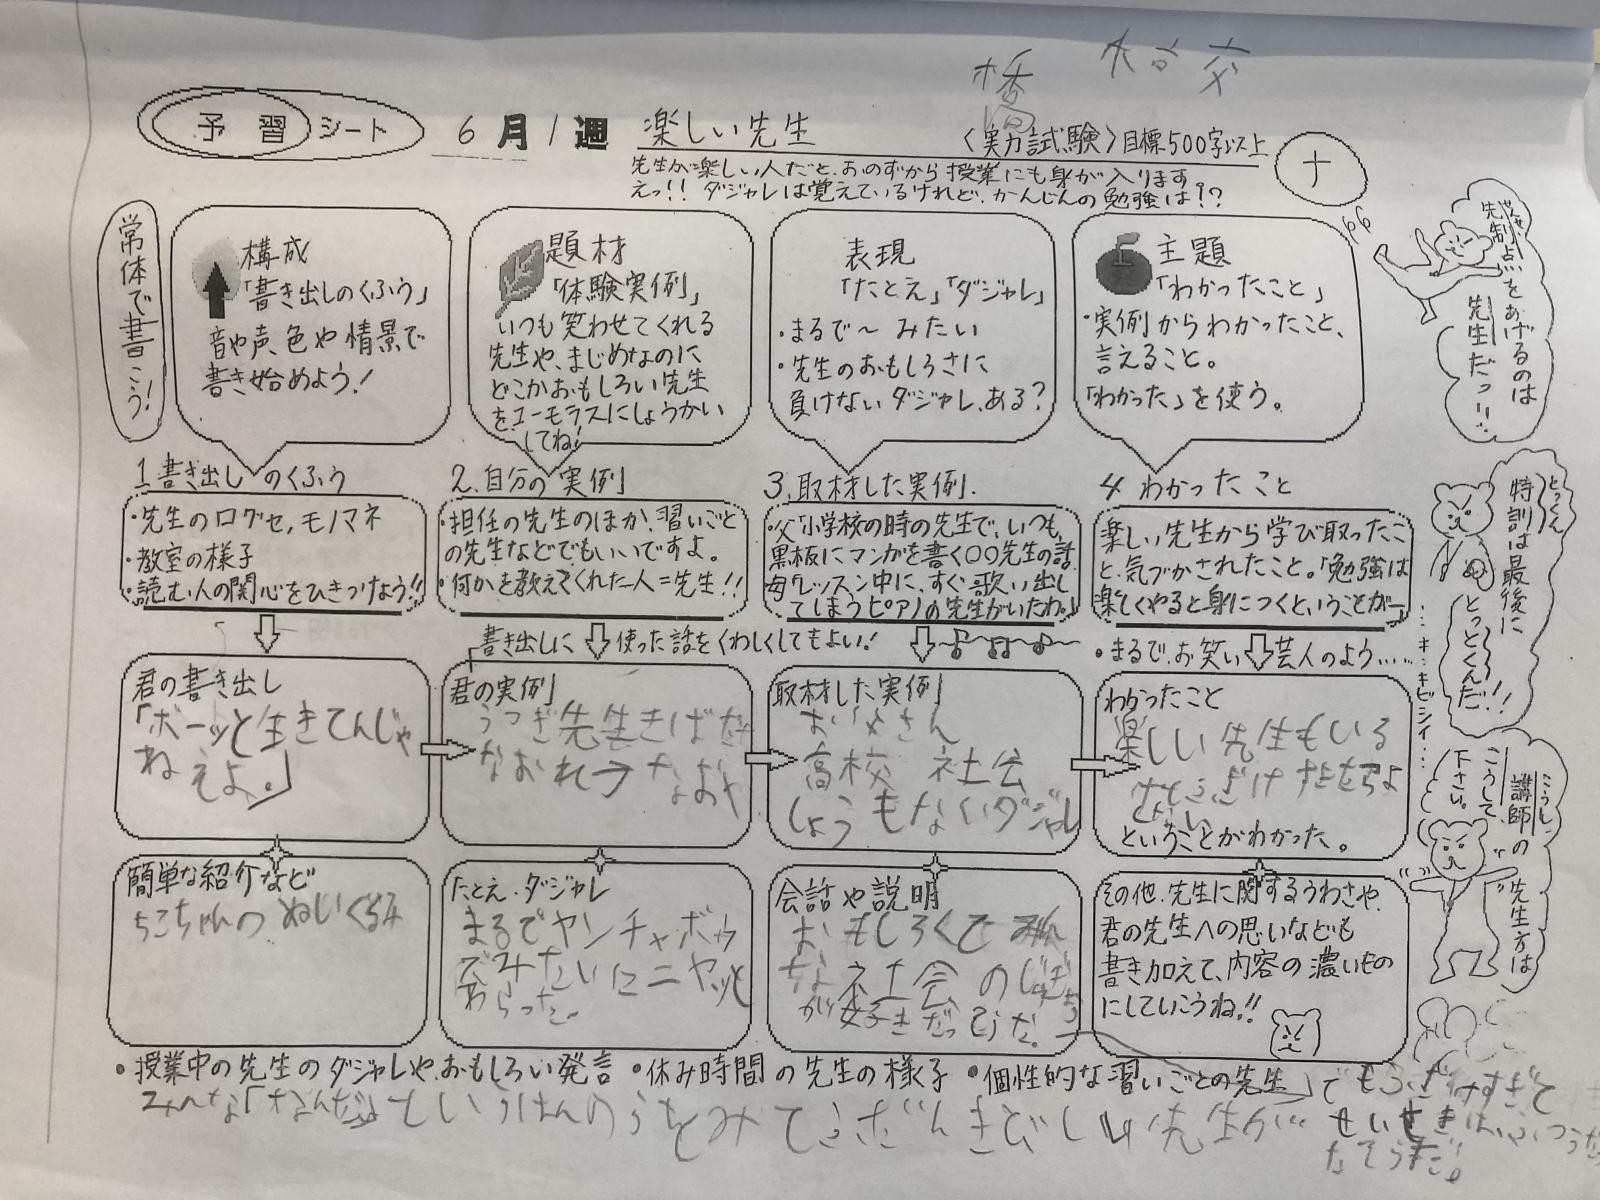 橋
校 交
予習シート 6月1週 楽しい先生 〈実力試験〉目標500字以上 ナ
先生が楽しい人だと、おのずから授業にも身が入ります
えっ!! ダジャレは覚えているけれど、かんじんの勉強は??
常体で書こう!
構成
「書き出しのくふう」
音や声、色や情景で
書き始めよう!
題材
「体験実例」
いつも笑わせてくれる
先生や、まじめなのに
どこかおもしろい先生
をユーモラスにしょうかい
してね!
表現
「たとえ」「ダジャレ」
・まるで〜みたい
・先生のおもしろさに
負けないダジャレ、ある?
主題
「わかったこと」
・実例からわかったこと、
言えること。
「わかった」を使う。
せんせい
先制点をあげるのは
先生だっ!!
1.書き出しのくふう
・先生の口グセ,モノマネ
・教室の様子
・読む人の関心をひきつけよう!!
2.自分の実例
・担任の先生のほか、習いごと
の先生などでもいいですよ。
・何かを教えてくれた人=先生!!
3.取材した実例.
・父「小学校の時の先生で、いつも、
黒板にマンガを書く〇〇先生の話
母「レッスン中に、すぐ歌い出し
てしまうピアノの先生がいたわ。」
4.わかったこと
楽しい先生から学び取ったこ
と、気づかされたこと。「勉強は
楽しくやると身につくということが〜」
とっくん
特訓は最後に
とっとくんだ!!
…キ…キビシイ…
書き出しに使った話をくわしくしてもよい!
・まるで、お笑い芸人のよう……
君の書き出し
「ボーッと生きてんじゃ
ねえよ。」
君の実例
うつぎ先生きば
なおれ→なおや
取材した実例
お父さん
高校 社会
しょうもないダジャレ
わかったこと
楽しい先生もいる
ということがわかった。
簡単な紹介など
ちこちゃんの ぬいぐるみ
たとえ・ダジャレ
まるでヤンチャボウ
ズみたいにニヤッと
わらった。
会話や説明
おもしろくてみん
な社会の
が好きだったそうだ。
その他、先生に関するうわさや、
君の先生への思いなども
書き加えて、内容の濃いもの
にしていこうね!!
こうし
講師の先生方は
こうして
下さい。
・授業中の先生のダジャレや、おもしろい発言 ・休み時間の先生の様子 ・個性的な習いごとの先生
でもふざけすぎて
みんな「なんだよ」というはんのうをみて きびしい先生が
せいせき